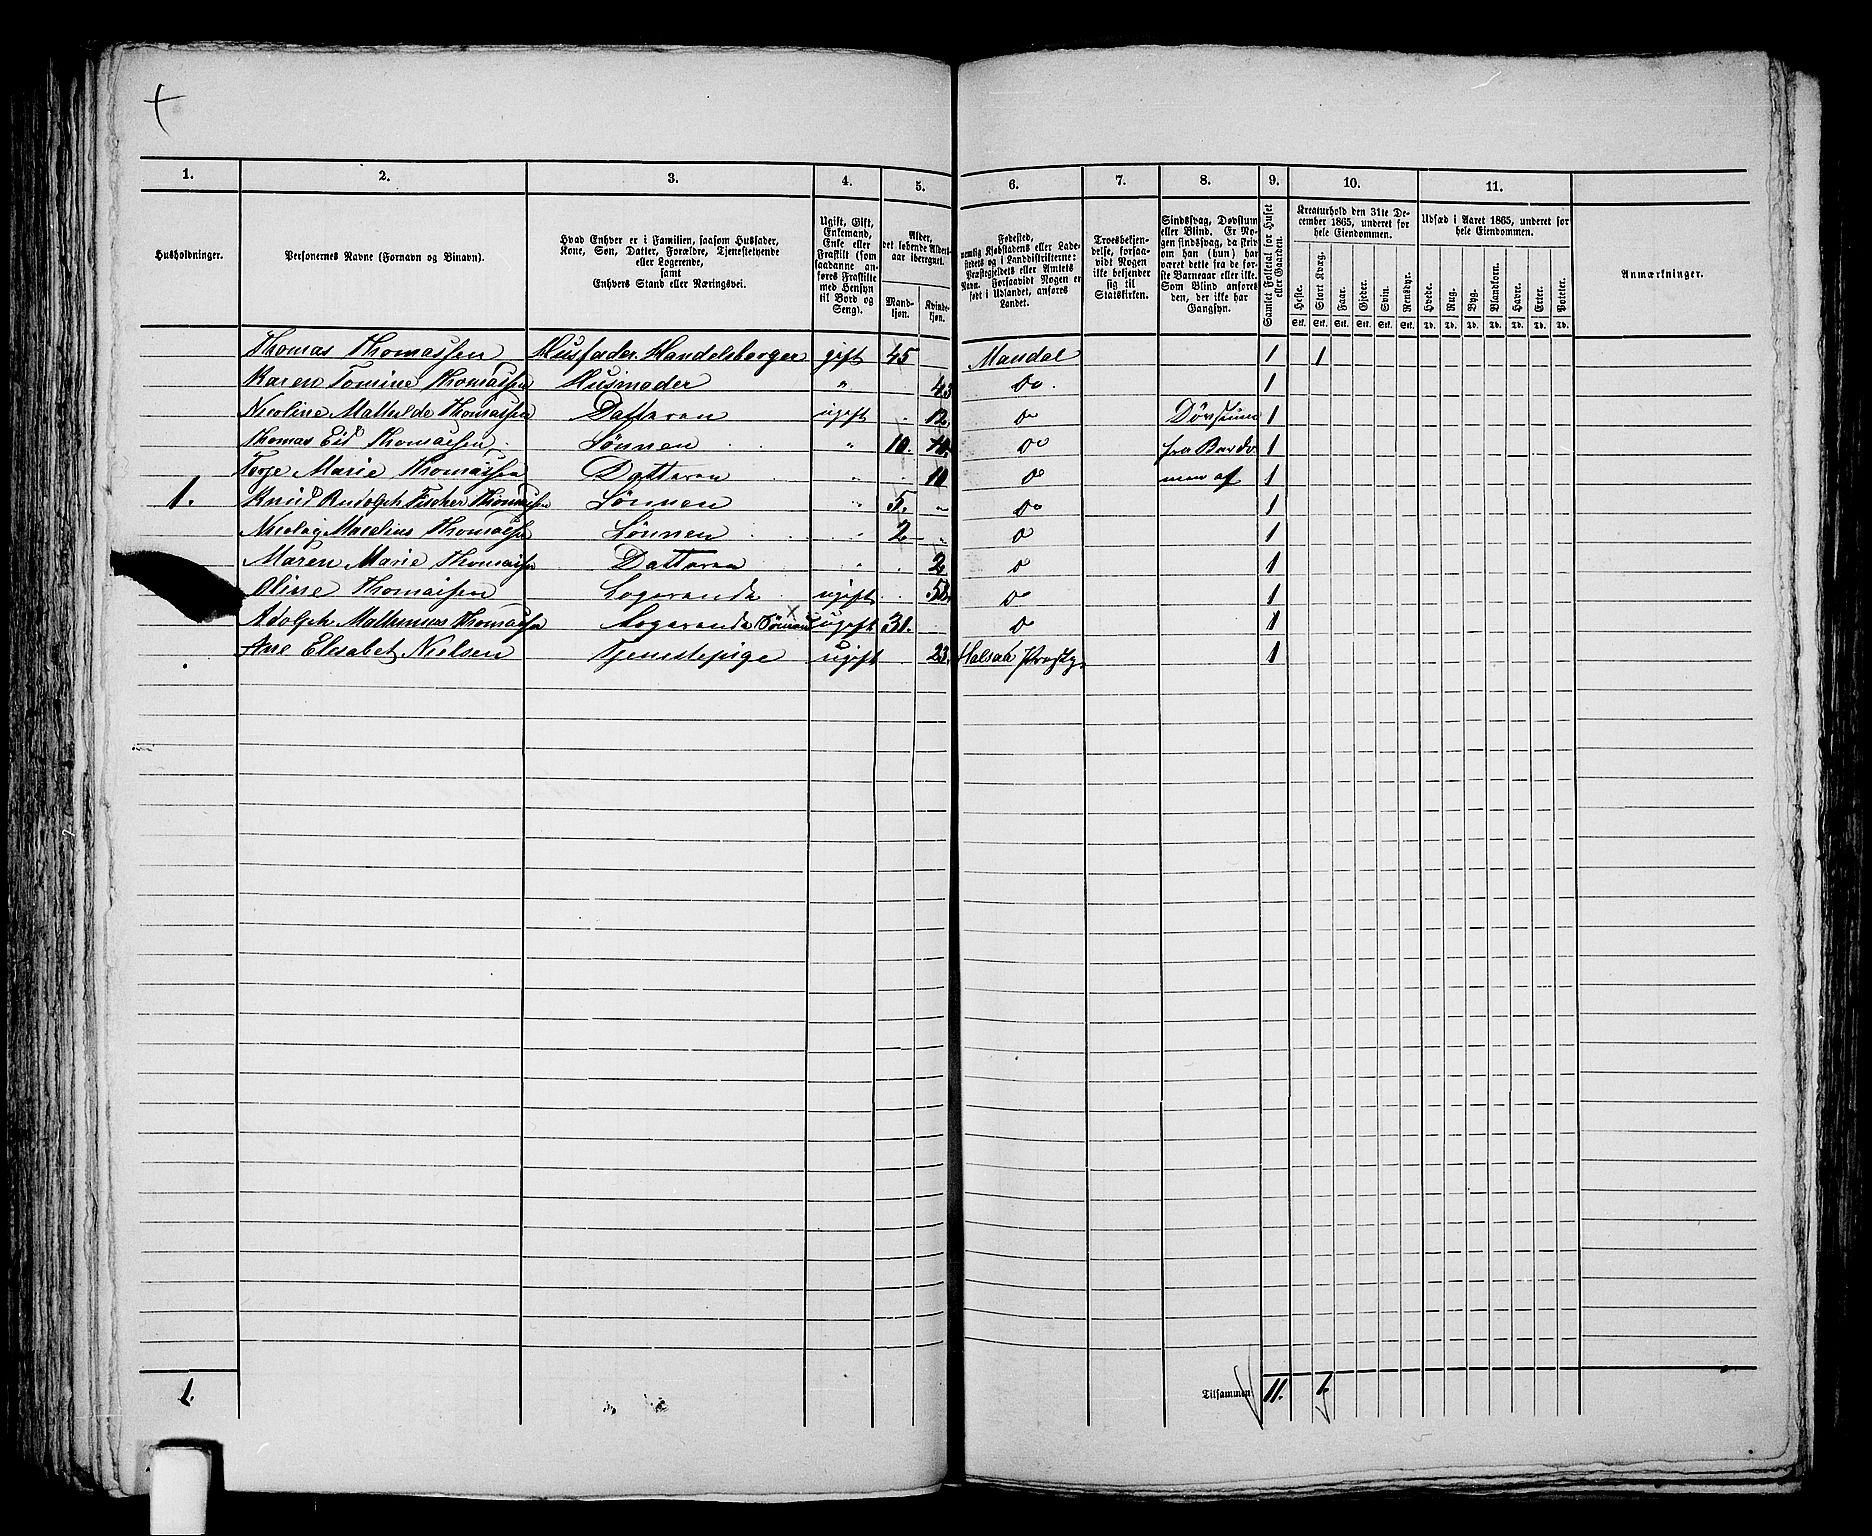 1. 2. 3. 4. 5. 6. 7. 8. 9. 10. 11.
Husholdninger.
Personernes Navne (Fornavn og Binavn).
Hvad Enhver er i Familien, saasom Husfader,
Kone, Søn, Datter, Forældre, Tjenestetyende
eller Logerende,
samt
Enhvers Stand eller Næringsvei.
Ugift, Gift,
Enkemand,
Enke eller
Fraskilt (som
saadanne an-
føres Fraskilte
med Hensyn
til Bord og
Seng).
Alder,
det løbende Alders-
aar iberegnet.
Mand-
kjøn.
Kvinde-
kjøn.
Fødested,
nemlig Kjøbstadens eller Lade-
stedets og i Landdistrikterne:
Præstegjeldets eller Amtets
Navn. Forsaavidt Nogen er
født i Udlandet, anføres
Landet.
Troesbekjen-
delse, forsaa-
vidt Nogen
ikke bekjender
sig til
Statskirken.
Sindssvag, Døvstum
eller Blind. Er No-
gen sindssvag, da skriv
om han (hun) har
været dette fra de før-
ste Barneaar eller ikke.
Som Blind anføres
den, der ikke har
Gangsyn.
Samlet Folketal for Huset
eller Gaarden.
Kreaturhold den 31te De-
cember 1865, underet for
hele Eiendommen.
Heste. Stort Kvæg. Faar. Gjeder. Svin. Rensdyr.
Stk. Stk. Stk. Stk. Stk. Stk.
Udsæd i Aaret 1865, underet for
hele Eiendommen.
Hvede. Rug. Byg. Blandkorn. Havre. Erter. Poteter.
Td. Td. Td. Td. Td. Td. Td.
Anmærkninger.
Thomas Thomassen Husfader. Handelsborger gift 45 Mandal 1 1
Karen Tomine Thomassen Husmoder " 43 Do. 1
Nicoline Mathilde Thomassen Datteren ugift 12. Do Døvstum 1
Thomas Eid Thomassen Sønnen " 10. 10. Do fra Bardo 1
Torje Marie Thomassen Datteren " 10 Do men af 1
1. Knud Rudolph Fischer Thomassen Sønnen " 5. Do 1
Nicolay Marelius Thomassen Sønnen " 2 Do 1
Maren Marie Thomassen Datteren " 2 Do 1
Oline Thomassen Logerende ugift 58. Do 1
Adolph Mathinius Thomassen Logerende Sømand ugift 31. Do 1
Ane Elisabet Nielsen Tjenestepige ugift 23. Halsaa Præstg. 1
1. Tilsammen 11. 1.